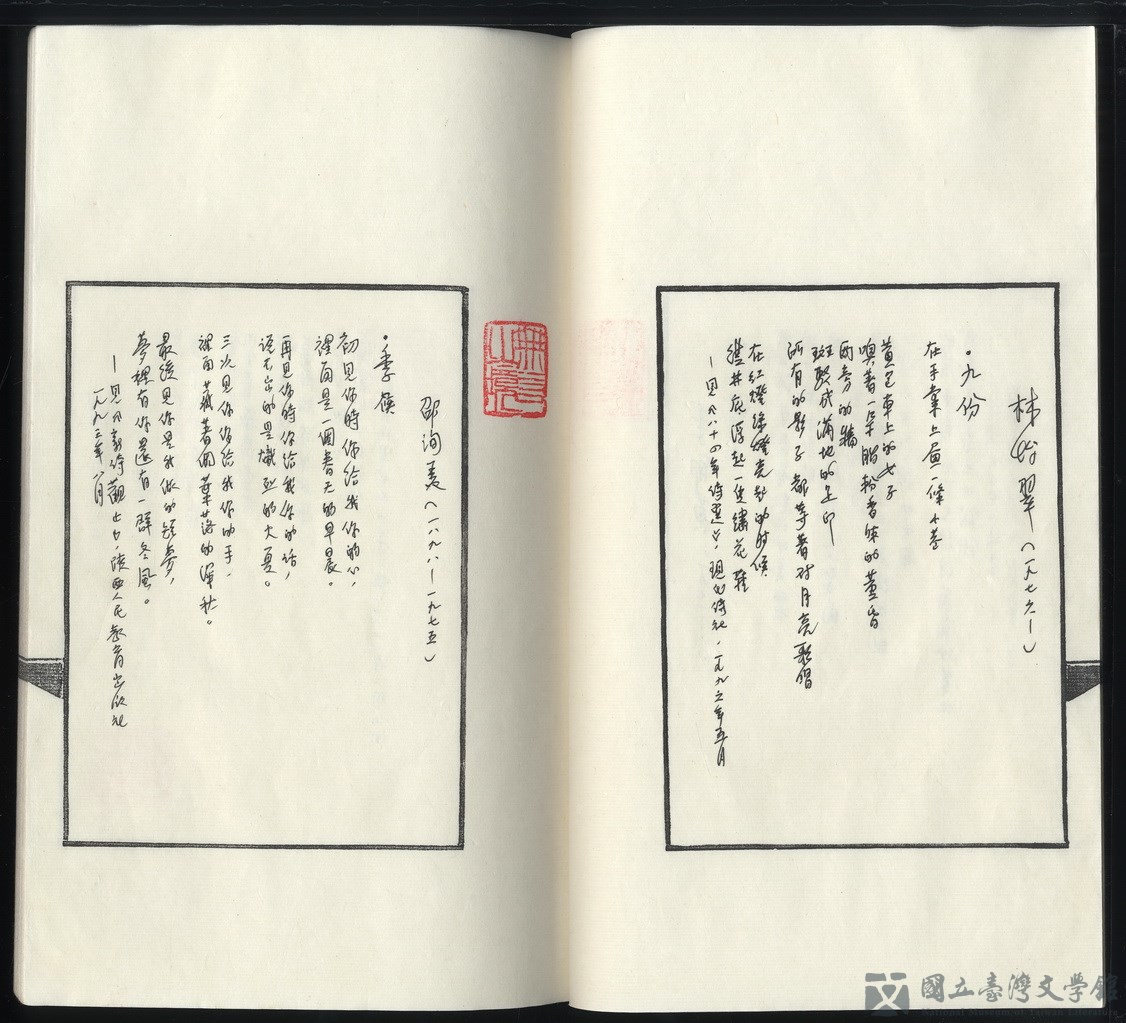 林怡翠（一九七六—）
・九份
在手掌上畫一條小巷
黃包車上的女子
嗅著一朵胭脂粉香味的薑
兩旁的牆
斑駁成滿地的
所有的影子都等著對月亮歌唱
在紅燈綠燈亮起的時候
從井底浮起一隻繡花鞋
—見《八十四年詩選》，現代詩社，一九九六年五月
邵洵美（一八九八—一九七五）
・季候
初見你時你給我你的心，
裡面是一個春天的早晨。
再見你時你給我你的話，
說不出的是熾烈的火夏。
三次見你你給我你的手，
裡面藏著個葉落的深秋。
最後見你是我做的短夢，
夢裡有你還有一群冬風。
—見《新詩觀止》，陝西人民教育出版社
一九九三年八月
國立臺灣文學館
National Museum of Taiwan Literature